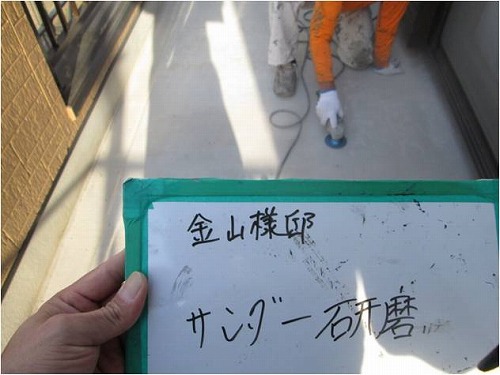 金山様邸
サンダー研磨